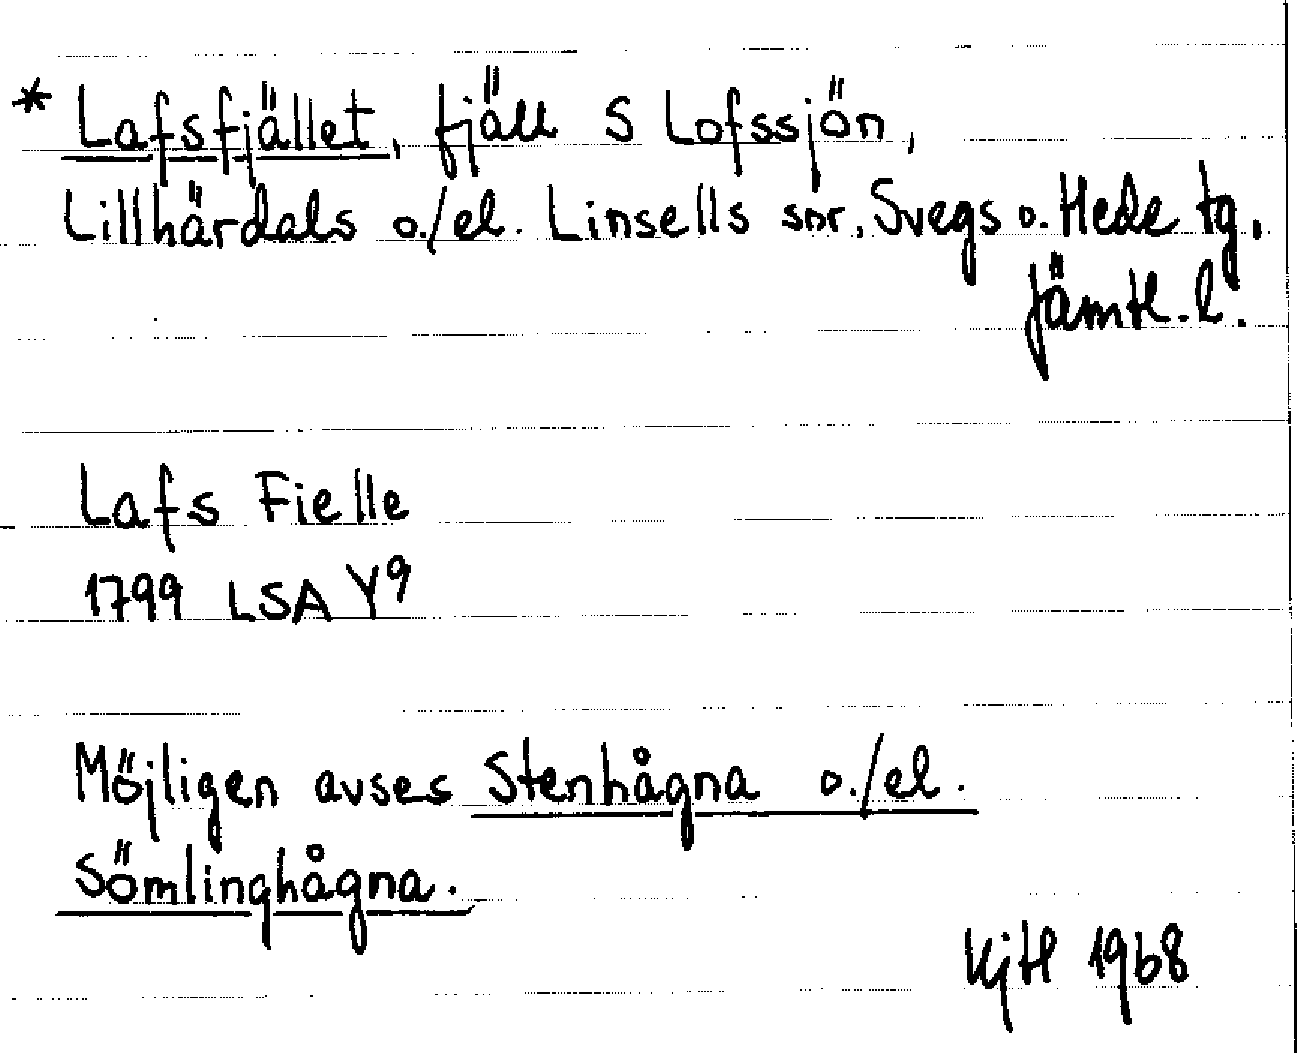 * Lafsfjället, fjäll S Lofssjön,
Lillhärdals o./el. Linsells snr, Svegs o. Hede tg,
Jämtl. l.
Lafs Fielle
1799 LSA Y9
Möjligen avses Stenhågna o./el.
Sömlinghågna.
KjH 1968